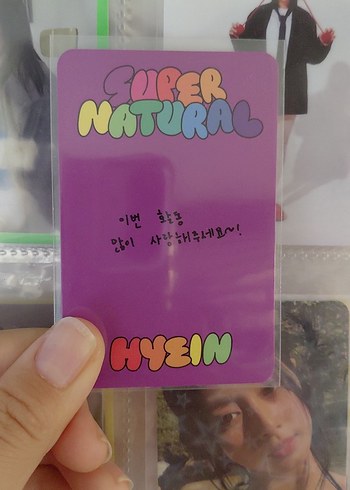 SUPER
NATURAL
이번 활동
많이 사랑해주세요~!
HYEIN